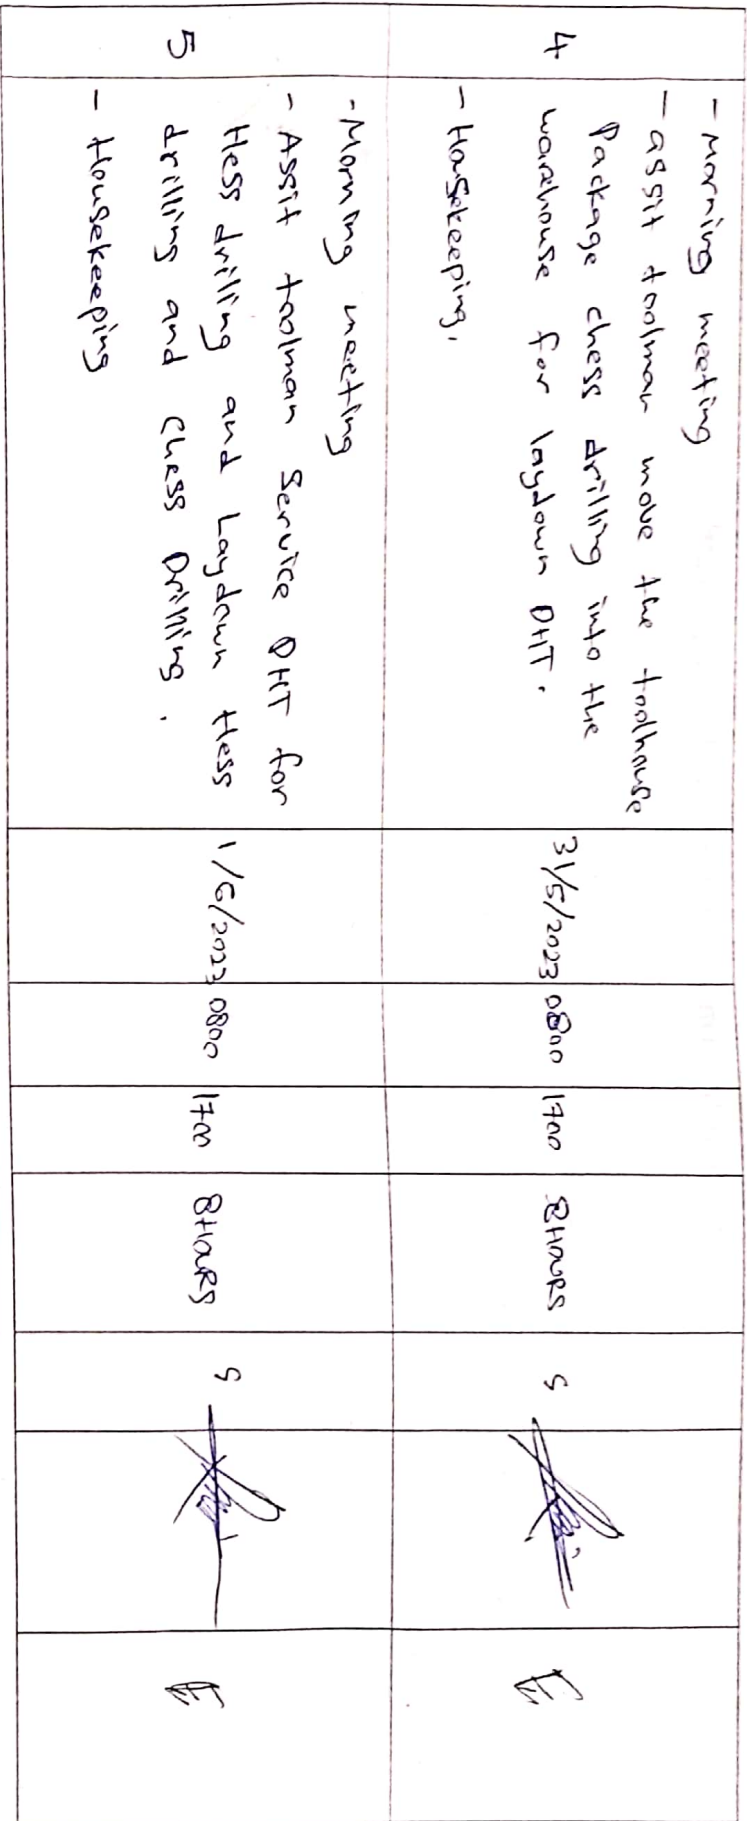 4
- Morning meeting
- assit toolman move the toolhouse
Package chess drilling into the
warehouse for laydown DHT.
- Housekeeping.
31/5/2023
0800
1700
8HOURS
S
E
5
- Morning meeting
- Assit toolman Service DHT for
Hess drilling and Laydown Hess
drilling and Chess Drilling.
- Housekeeping
1/6/2023
0800
1700
8HOURS
S
E